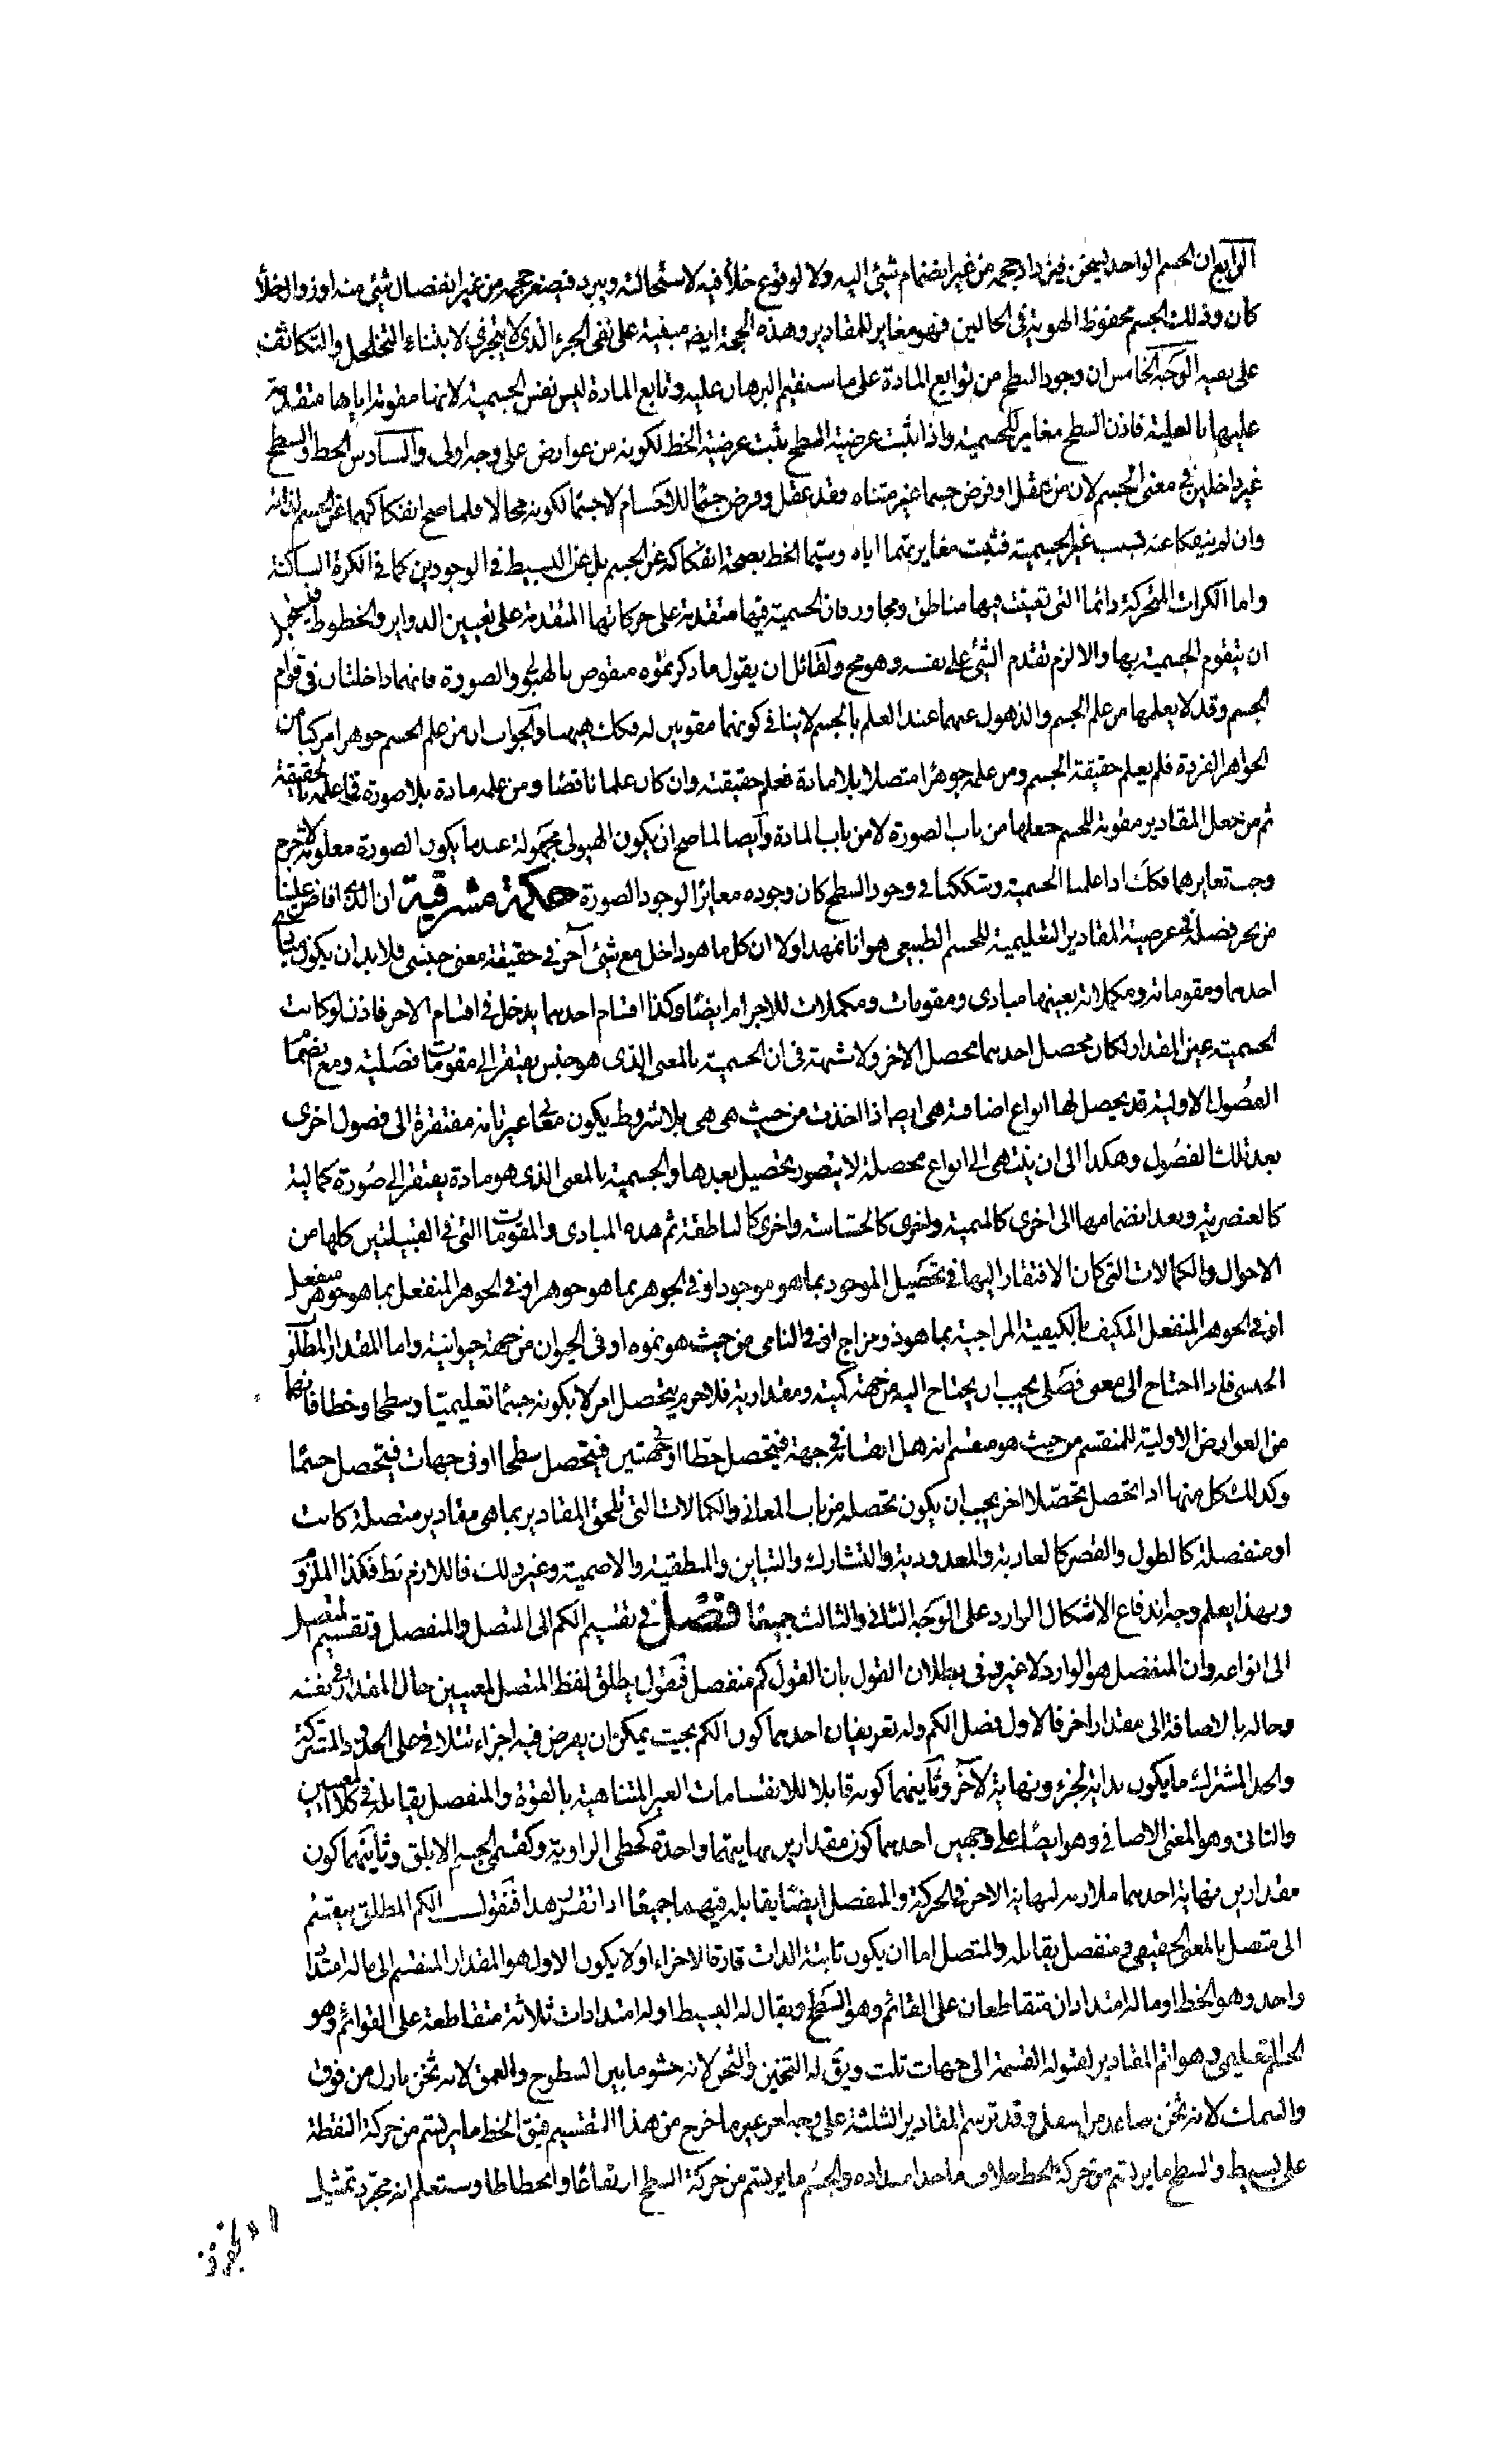 الرابع ان الجسم الواحد يسخن فيزداد حجمه من غير انضمام شئ اليه ولا لوقوع خلأ فيه لاستحالته ويبرد فيصغر حجمه من غير انفصال شئ منه او زوال خلأ
كان وذلك الجسم محفوظ الهوية فى الحالين فهو مغاير للمقادير وهذه الحجة ايضه مبنية على نفى الجزء الذى لا يتجزى لابتناء التخلخل والتكاثف
على نفيه الوجه الخامس ان وجود السطح من توابع المادة على ما سنقيم البرهان عليه وتابع المادة ليس نفس الجسمية لانها مقومة اياها متقدمة
عليها بالعلية فاذن السطح مغاير للجسمية واذا ثبت عرضية السطح ثبت عرضية الخط لكونه من عوارض على وجه اولى والسادس الخط والسطح
غير داخلين فى معنى الجسم لان من عقل او فرض جسما غير متناه فقد عقل وفرض جسما للاجسام لا جسما لكونه محالا فلما صح انفكاكهما عن الجسم
وان لم ينفكا عنه لسبب غير الجسمية فثبت مغايرتهما اياه وسيما الخط بصحة انفكاكه عن الجسم بل عن البسيط فى الوجودين كما فى الكرة الساكنة
واما الكرات المتحركة دائما التى تعينت فيها مناطق ومحاور فان الجسمية فيها متقدمة على حركاتها المتقدمة على تعيين الدواير والخطوط فيستحيل
ان يتقوم الجسمية بها والا لزم تقدم الشئ على نفسه وهو مح ولقائل ان يقول ما ذكرتموه منقوض بالهيولى والصورة فانهما داخلتان فى قوام
الجسم وقد لا يعلمهما من علم الجسم والذهول عنهما عند العلم بالجسم لا ينافى كونهما مقومين له فكك هيهنا والجواب ان من علم الجسم جوهرا مركبا من
الجواهر الفردة فلم يعلم حقيقة الجسم ومن علمه جوهرا متصلا بلا مادة فعلم حقيقته وان كان علما ناقصا ومن علمه مادة بلا صورة فما علمه بالحقيقة
ثم من جعل المقادير مقومة للجسم جعلها من باب الصورة لا من باب المادة وايضا لما صح ان يكون الهيولى مجهولة عندما يكون الصورة معلومة لا جرم
وجب تغايرهما فكك اذا علمنا الجسمية وشككنا فى وجود السطح كان وجوده مغايرا لوجود الصورة حكمة مشرقية ان الذى افاض علينا
من بحر فضله فى عرضية المقادير التعليمية للجسم الطبيعى هو انا نمهد اولا ان كل ما هو داخل مع شئ آخر فى حقيقة معنى جنسى فلا بد ان يكون مبادى
احدهما ومقوماته ومكملاته بعينها مبادى ومقومات ومكملات للاجرام ايضا وكذا اقسام احدهما يدخل فى اقسام الاخر فاذن لو كانت
الجسمية عين المقدار لكان محصل احدهما محصل الاخر ولا شبهة فى ان الجسمية بالمعنى الذى هو جنس يفتقر الى مقومات فصلية ومع انضمام
الفصول الاولية قد يحصل لها انواع اضافية هى ايضا اذا اخذت من حيث هى هى بلا شرط يكون معانى غير تامة مفتقرة الى فصول اخرى
بعد تلك الفصول وهكذا الى ان ينتهى الى انواع محصلة لا يتصور تحصيل بعدها والجسمية بالمعنى الذى هو مادة يفتقر الى صورة كمالية
كالعنصرية وبعد انضمامها الى اخرى كالنمية واخرى كالحساسة واخرى كالناطقة ثم هذه المبادى والمقومات التى فى القبيلتين كلها من
الاحوال والكمالات التى كان الافتقار اليها فى تحصيل الموجود بما هو موجود او فى الجوهر بما هو جوهر او فى الجوهر المنفعل بما هو جوهر منفعل
او فى الجوهر المنفعل المكيف بالكيفية المزاجية بما هو ذو مزاج او فى النامى من حيث هو نموه او فى الحيوان من جهة حيوانية واما المقدار المطلق
الجنسى فاذا احتاج الى معنى فصلى يجب ان يحتاج اليه من جهة كميته ومقداريته فلا جرم يتحصل امرا يكونه جسما تعليميا وسطحا وخطا فانها
من العوارض الاولية للمنقسم من حيث هو منقسم انه هل انقسامه فى جهة فيتحصل خطا او فى جهتين فيتحصل سطحا او فى جهات فيتحصل جسما
وكذلك كل منها اذا تحصل تحصلا اخر يجب ان يكون تحصله من باب المعانى والكمالات التى تلحق المقادير بما هى مقادير متصلة كانت
او منفصلة كالطول والقصر كالعادية والمعدودية والتشارك والتباين والمنطقية والاصمية وغير ذلك فاللازم بط فكذا الملزوم
وبهذا يعلم وجه اندفاع الاشكال الوارد على الوجه الثانى والثالث جميعا فصل فى تقسيم الكم الى المتصل والمنفصل وتقسيم المتصل
الى انواعه وان المنفصل هو الوارد لا غير وفى بطلان القول بان القول كم منفصل فنقول يطلق لفظ المتصل لمعنيين حال المقدار فى نفسه
وحاله بالاضافة الى مقدار اخر فالاول فصل الكم وله تعريفان احدهما كون الكم بحيث يمكن ان يفرض فيه اجزاء تتلاقى على الحدود المشتركة
والحد المشترك ما يكون بداية لجزء ونهاية لآخر وثانيهما كونه قابلا للانقسامات الغير المتناهية بالقوة والمنفصل يقابله فى كلا المعنيين
والثانى وهو المعنى الاضافى وهو ايضا على وجهين احدهما كون مقدارين نهايتهما واحدة كخطى الزاوية وكقسمى الجسم الابلق وثانيهما كون
مقدارين نهاية احدهما ملازمة لنهاية الاخر فى الحركة والمنفصل ايضا يقابله فيهما جميعا اذا تقرر هذا فنقول الكم المطلق ينقسم
الى متصل بالمعنى الحقيقى ومنفصل يقابله والمتصل اما ان يكون ثابتة الذات قارة الاجزاء او لا يكون الاول هو المقدار المنقسم الى ما له امتداد
واحد وهو الخط او ما له امتدادان متقاطعان على القائم وهو السطح ويقال له البسيط او له امتدادات ثلاثة متقاطعة على القوائم وهو
الجسم التعليمى وهو اتم المقادير لقبوله القسمة الى جهات ثلث ويق له الثخين والثخن لانه حشو ما بين السطوح والعمق لانه ثخن نازل من فوق
والسمك لانه ثخن صاعد من اسفل وقد ترسم المقادير الثلثة على وجه اخر غير ما خرج من هذا التقسيم فيق الخط ما يرتسم من حركة النقطة
على بسيط والسطح ما يرتسم من حركة الخط خلاف ماخذ امتداده والجسم ما يرتسم من حركة السطح ارتفاعا وانحطاطا وستعلم انه مجرد تمثيل